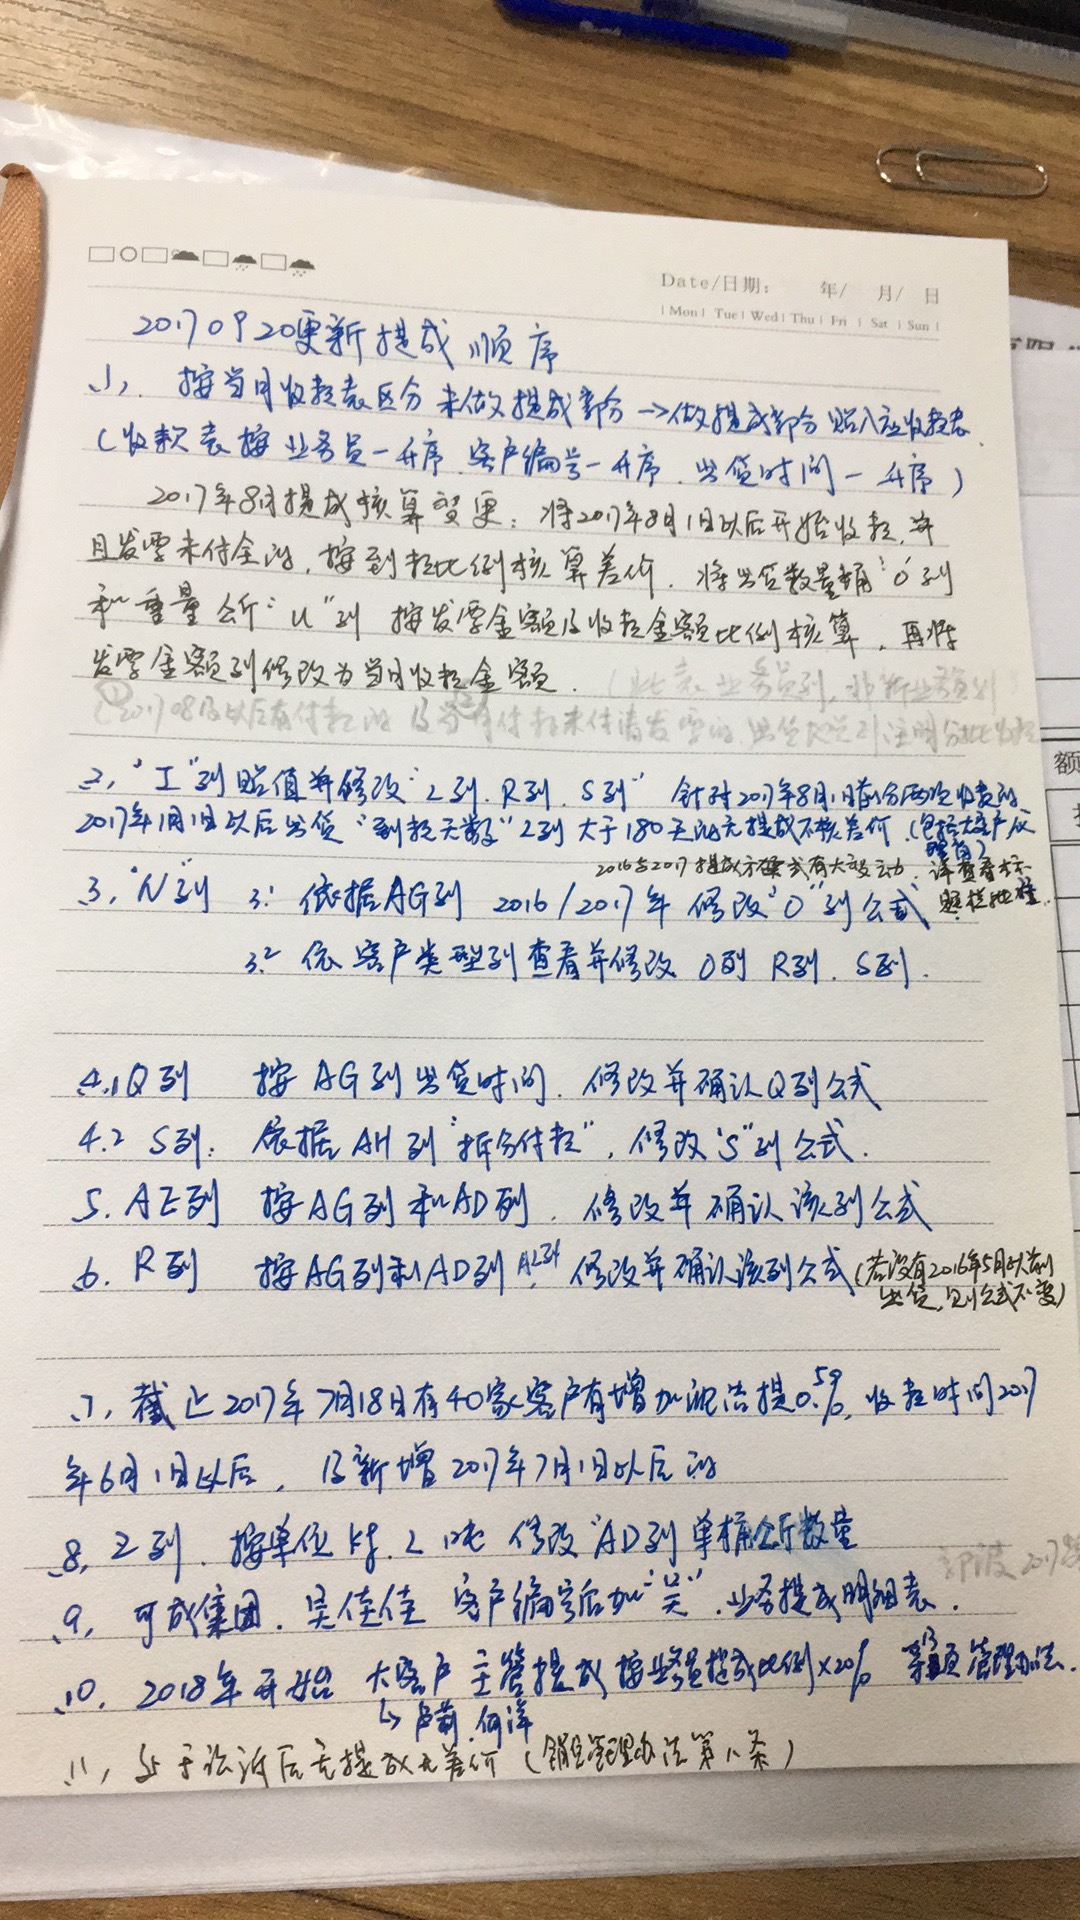 Date/日期: 年/ 月/ 日
| Mon | Tue | Wed | Thu | Fri | Sat | Sun |
20170920更新提成顺序
1, 按当月收款表区分未做提成部分→做提成部分贴入应收款表
(收款表按业务员一升序.客户编号一升序.出货时间一升序)
2017年8月提成核算变更:将2017年8月1日以后开始收款,并
且发票未付全的,按到款比例核算差价.将出货数量桶"O"列
和重量公斤"U"列 按发票金额及收款金额比例核算,再将
发票金额列修改为当月收款金额.
2, "I"列贴值并修改"L列.R列.S列" 针对2017年8月1日前分两次收款的
2017年1月1日以后出货"到款天数"Z列大于180天的无提成不核差价.(包括大客户及
2016与2017提成方案公式有大变动.
3, "N列 3.1 依据AG列 2016/2017年修改"O"列公式
3.2 依客户类型列查看并修改 O列 R列.S列.
4.1 Q列 按AG列出货时间.修改并确认Q列公式
4.2 S列: 依据AH列"拆分付款",修改"S"列公式.
5. AE列 按AG列和AD列.修改并确认该列公式
6. R列 按AG列和AD列 修改并确认该列公式(若没有2016年5月以前
出货,则公式不变)
7, 截止2017年7月18日有40家客户有增加 提0.5%,收款时间2017
年6月1日以后,及新增2017年7月1日以后的
8, Z列.按单位kg.L 吨 修改"AD列单桶公斤数量
9, 可成集团.吴佳佳 客户编号后加"吴".业务提成明细表.
10, 2018年开始 大客户主管提成按业务员提成比例×20% 管理办法.
↳ 卢前.何洋
11, 处于法诉后无提成无差价(销售管理办法第八条)